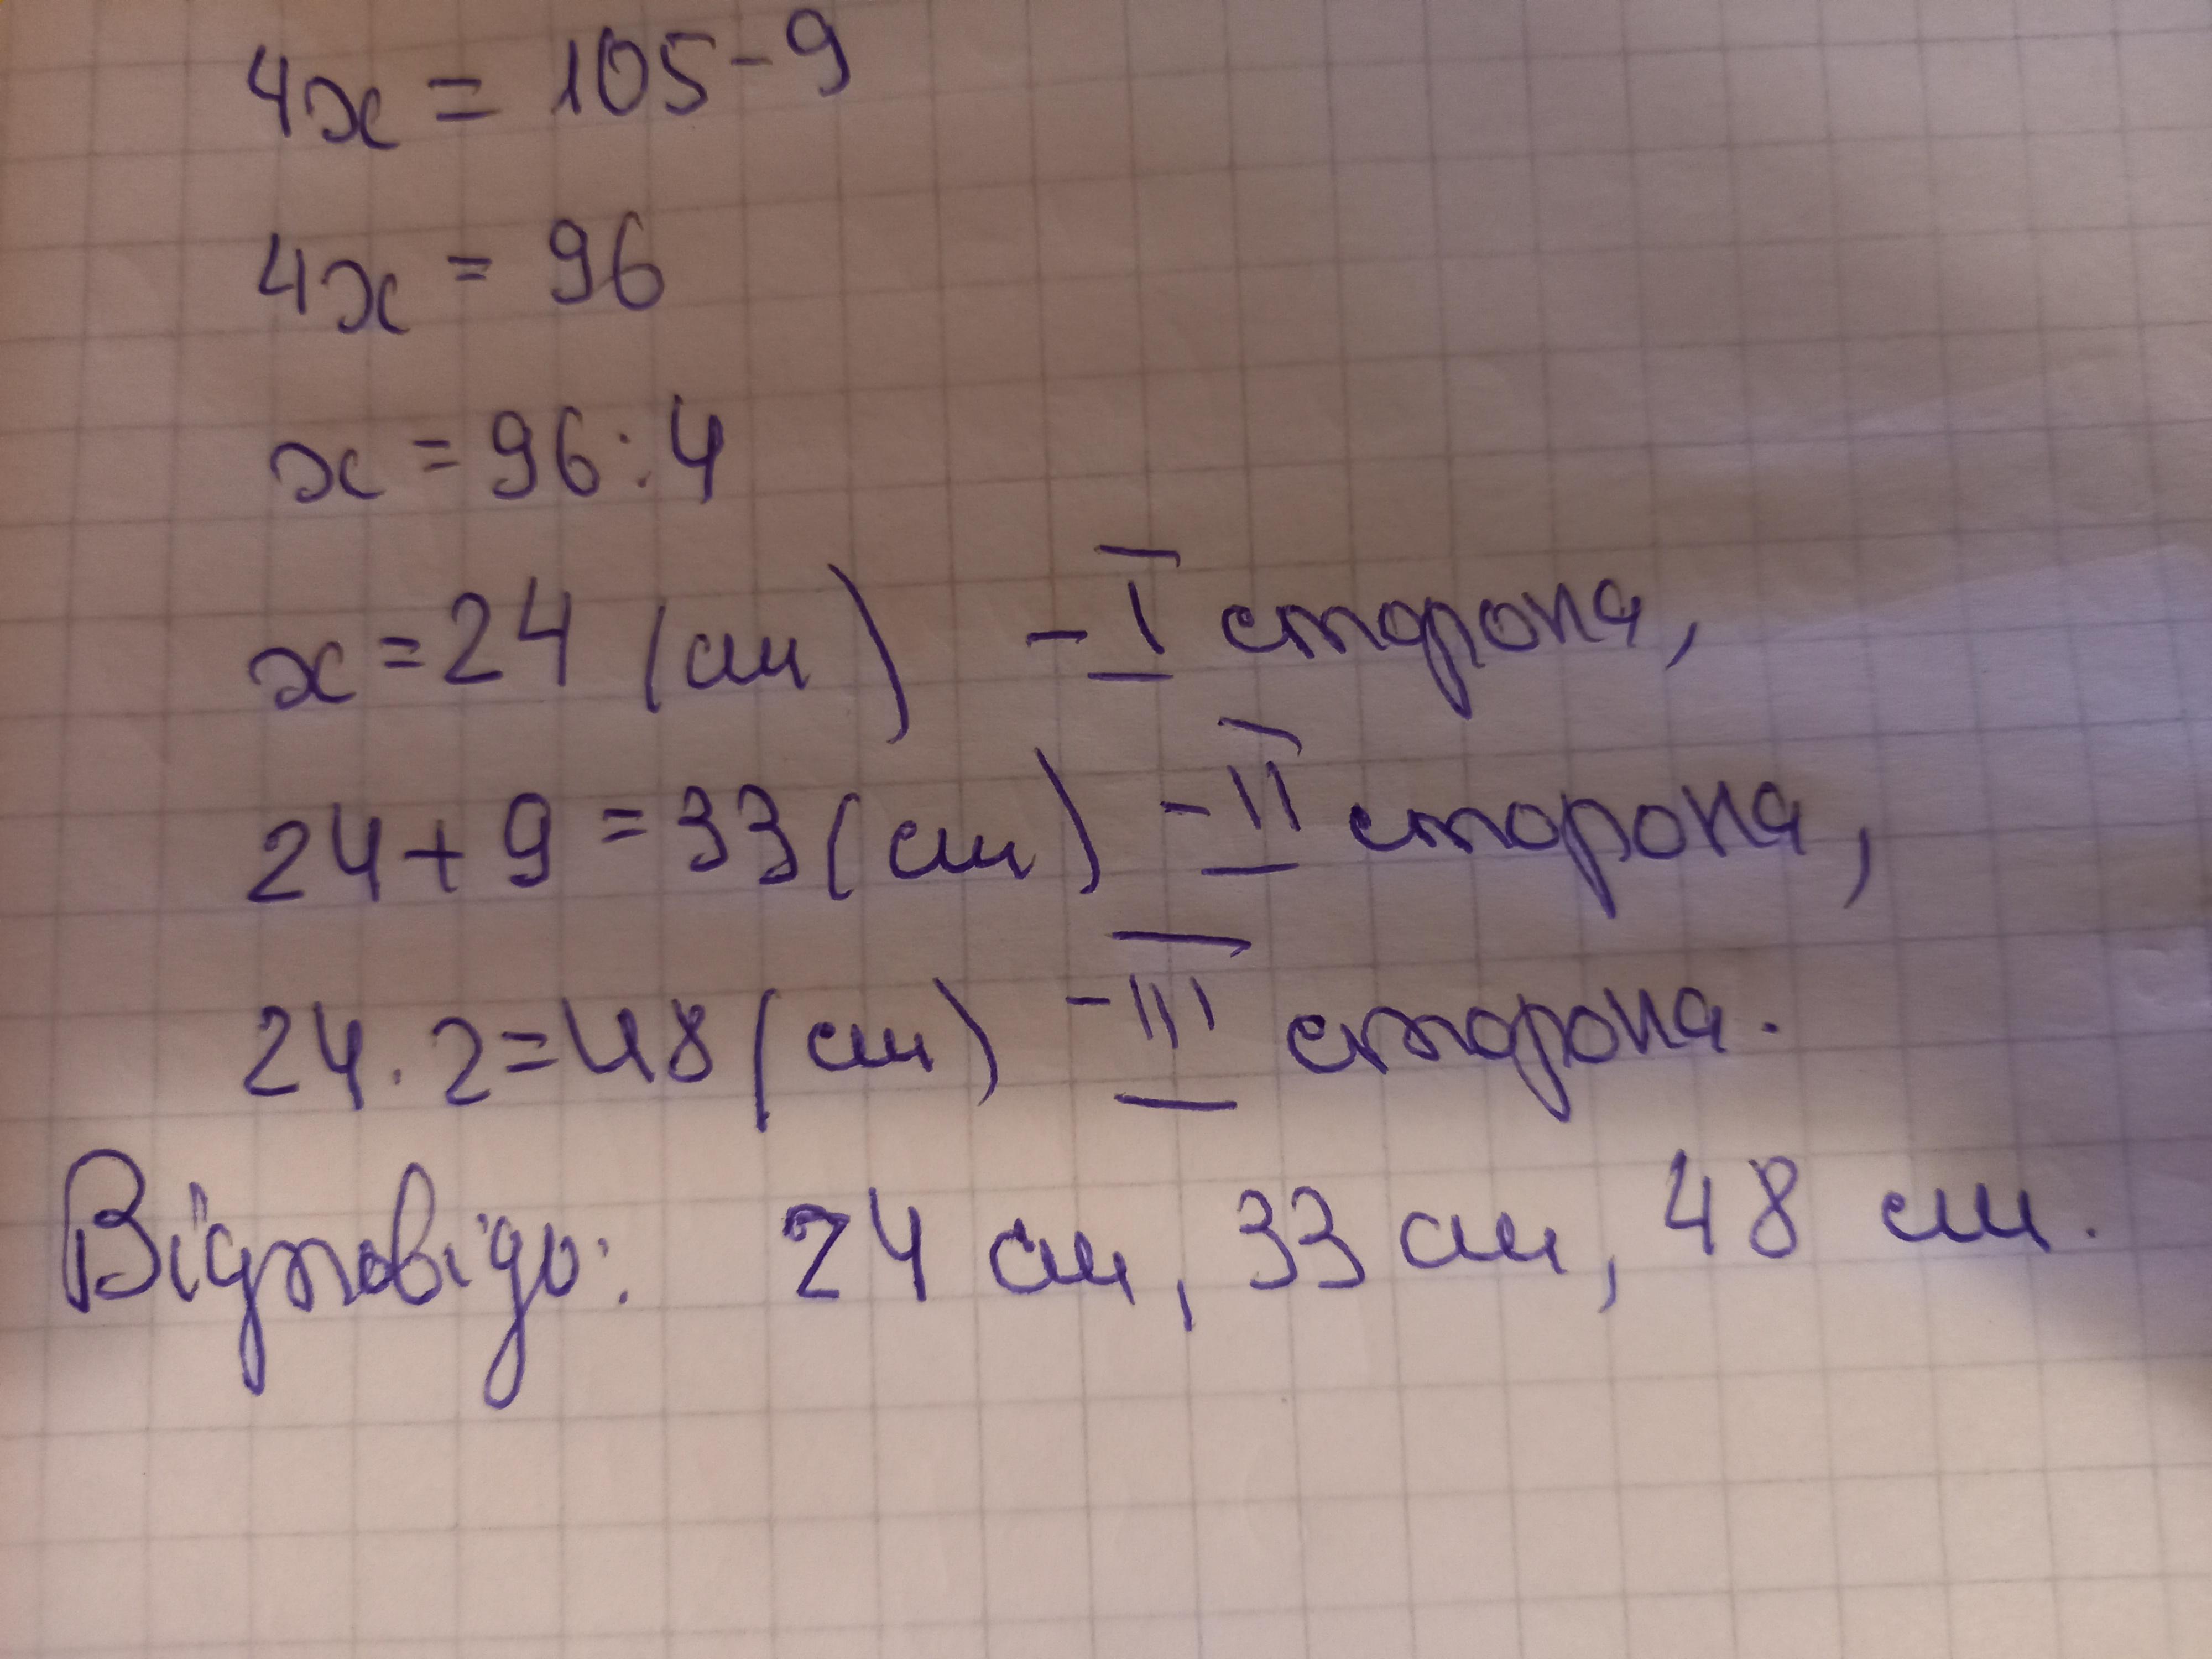 4x = 105 - 9
4x = 96
x = 96 : 4
x = 24 (см) - I сторона,
24 + 9 = 33 (см) - II сторона,
24 · 2 = 48 (см) - III сторона.
Відповідь: 24 см, 33 см, 48 см.